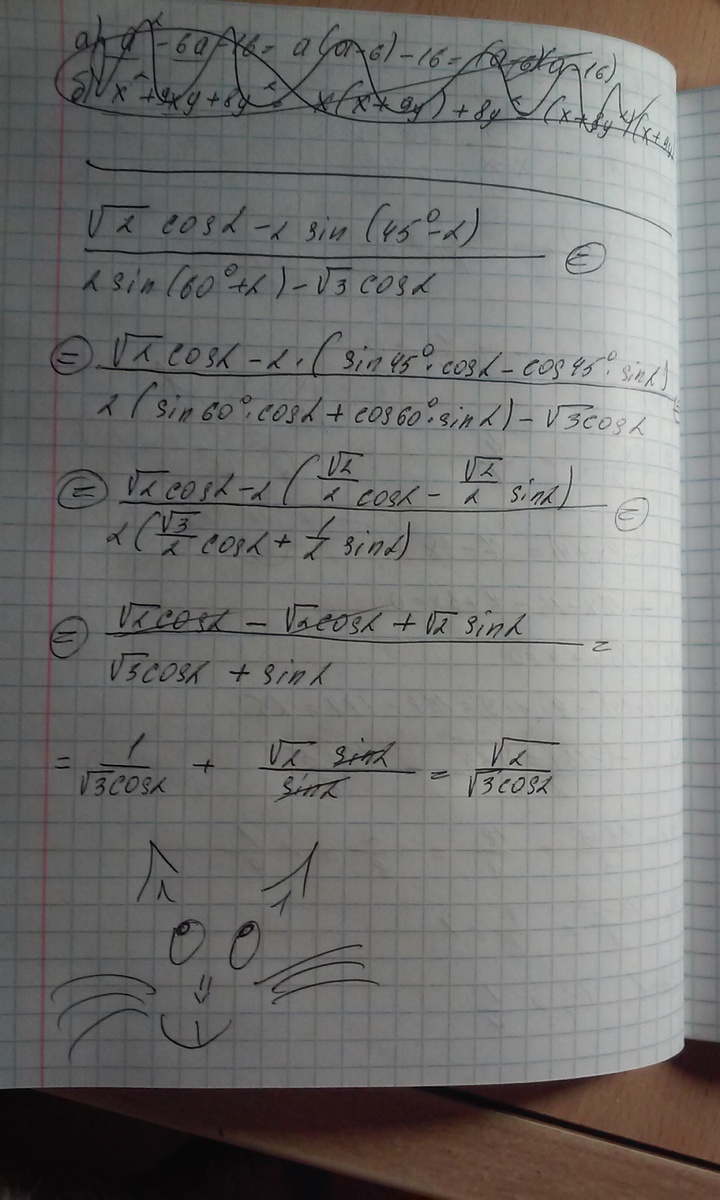 а) a² - 6a - 16 = a(a-6) - 16 = (a-6)(a-16)
б) x² + 9xy + 8y² = x(x+9y) + 8y² = (x+8y²)(x+9y)
√2 cosα - 2 sin (45° - α)
2 sin (60° + α) - √3 cosα =
= √2 cosα - 2 · (sin45° · cosα - cos45° · sinα)
2 (sin60° · cosα + cos60° · sinα) - √3 cosα =
= √2 cosα - 2 (√2/2 cosα - √2/2 sinα)
2 (√3/2 cosα + 1/2 sinα) =
= √2 cosα - √2 cosα + √2 sinα
√3 cosα + sinα =
= 1/√3 cosα + √2 sinα/sinα = √2/√3 cosα